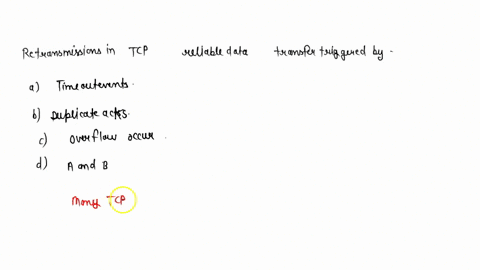 Retransmissions in TCP reliable data transfer triggered by -
a) Timeout events.
b) Duplicate acks.
c) Overflow occur.
d) A and B
Many TCP